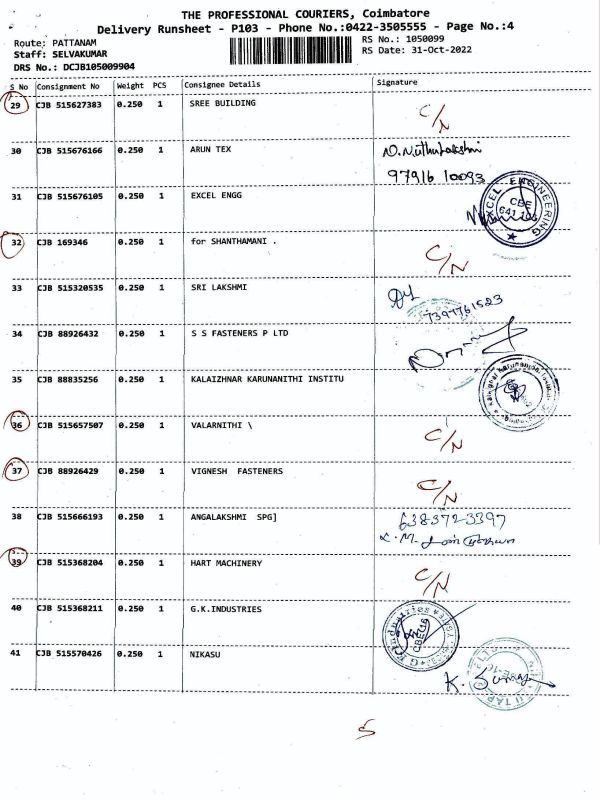 THE PROFESSIONAL COURIERS, Coimbatore
Delivery Runsheet - P103 - Phone No.:0422-3505555 - Page No.:4
Route: PATTANAM
RS No.: 1050099
Staff: SELVAKUMAR
RS Date: 31-Oct-2022
DRS No.: DCJB105009904
S No Consignment No Weight PCS Consignee Details Signature
29 CJB 515627383 0.250 1 SREE BUILDING C/N
30 CJB 515676166 0.250 1 ARUN TEX
97916 10093
31 CJB 515676105 0.250 1 EXCEL ENGG EXCEL ENGINEERING CBE
32 CJB 169346 0.250 1 for SHANTHAMANI . C/N
33 CJB 515320535 0.250 1 SRI LAKSHMI 7397761523
34 CJB 88926432 0.250 1 S S FASTENERS P LTD
35 CJB 88835256 0.250 1 KALAIZHNAR KARUNANITHI INSTITU
36 CJB 515657507 0.250 1 VALARNITHI \ C/N
37 CJB 88926429 0.250 1 VIGNESH FASTENERS C/N
38 CJB 515666193 0.250 1 ANGALAKSHMI SPG] 6383723397
39 CJB 515368204 0.250 1 HART MACHINERY C/N
40 CJB 515368211 0.250 1 G.K.INDUSTRIES
41 CJB 515570426 0.250 1 NIKASU
5